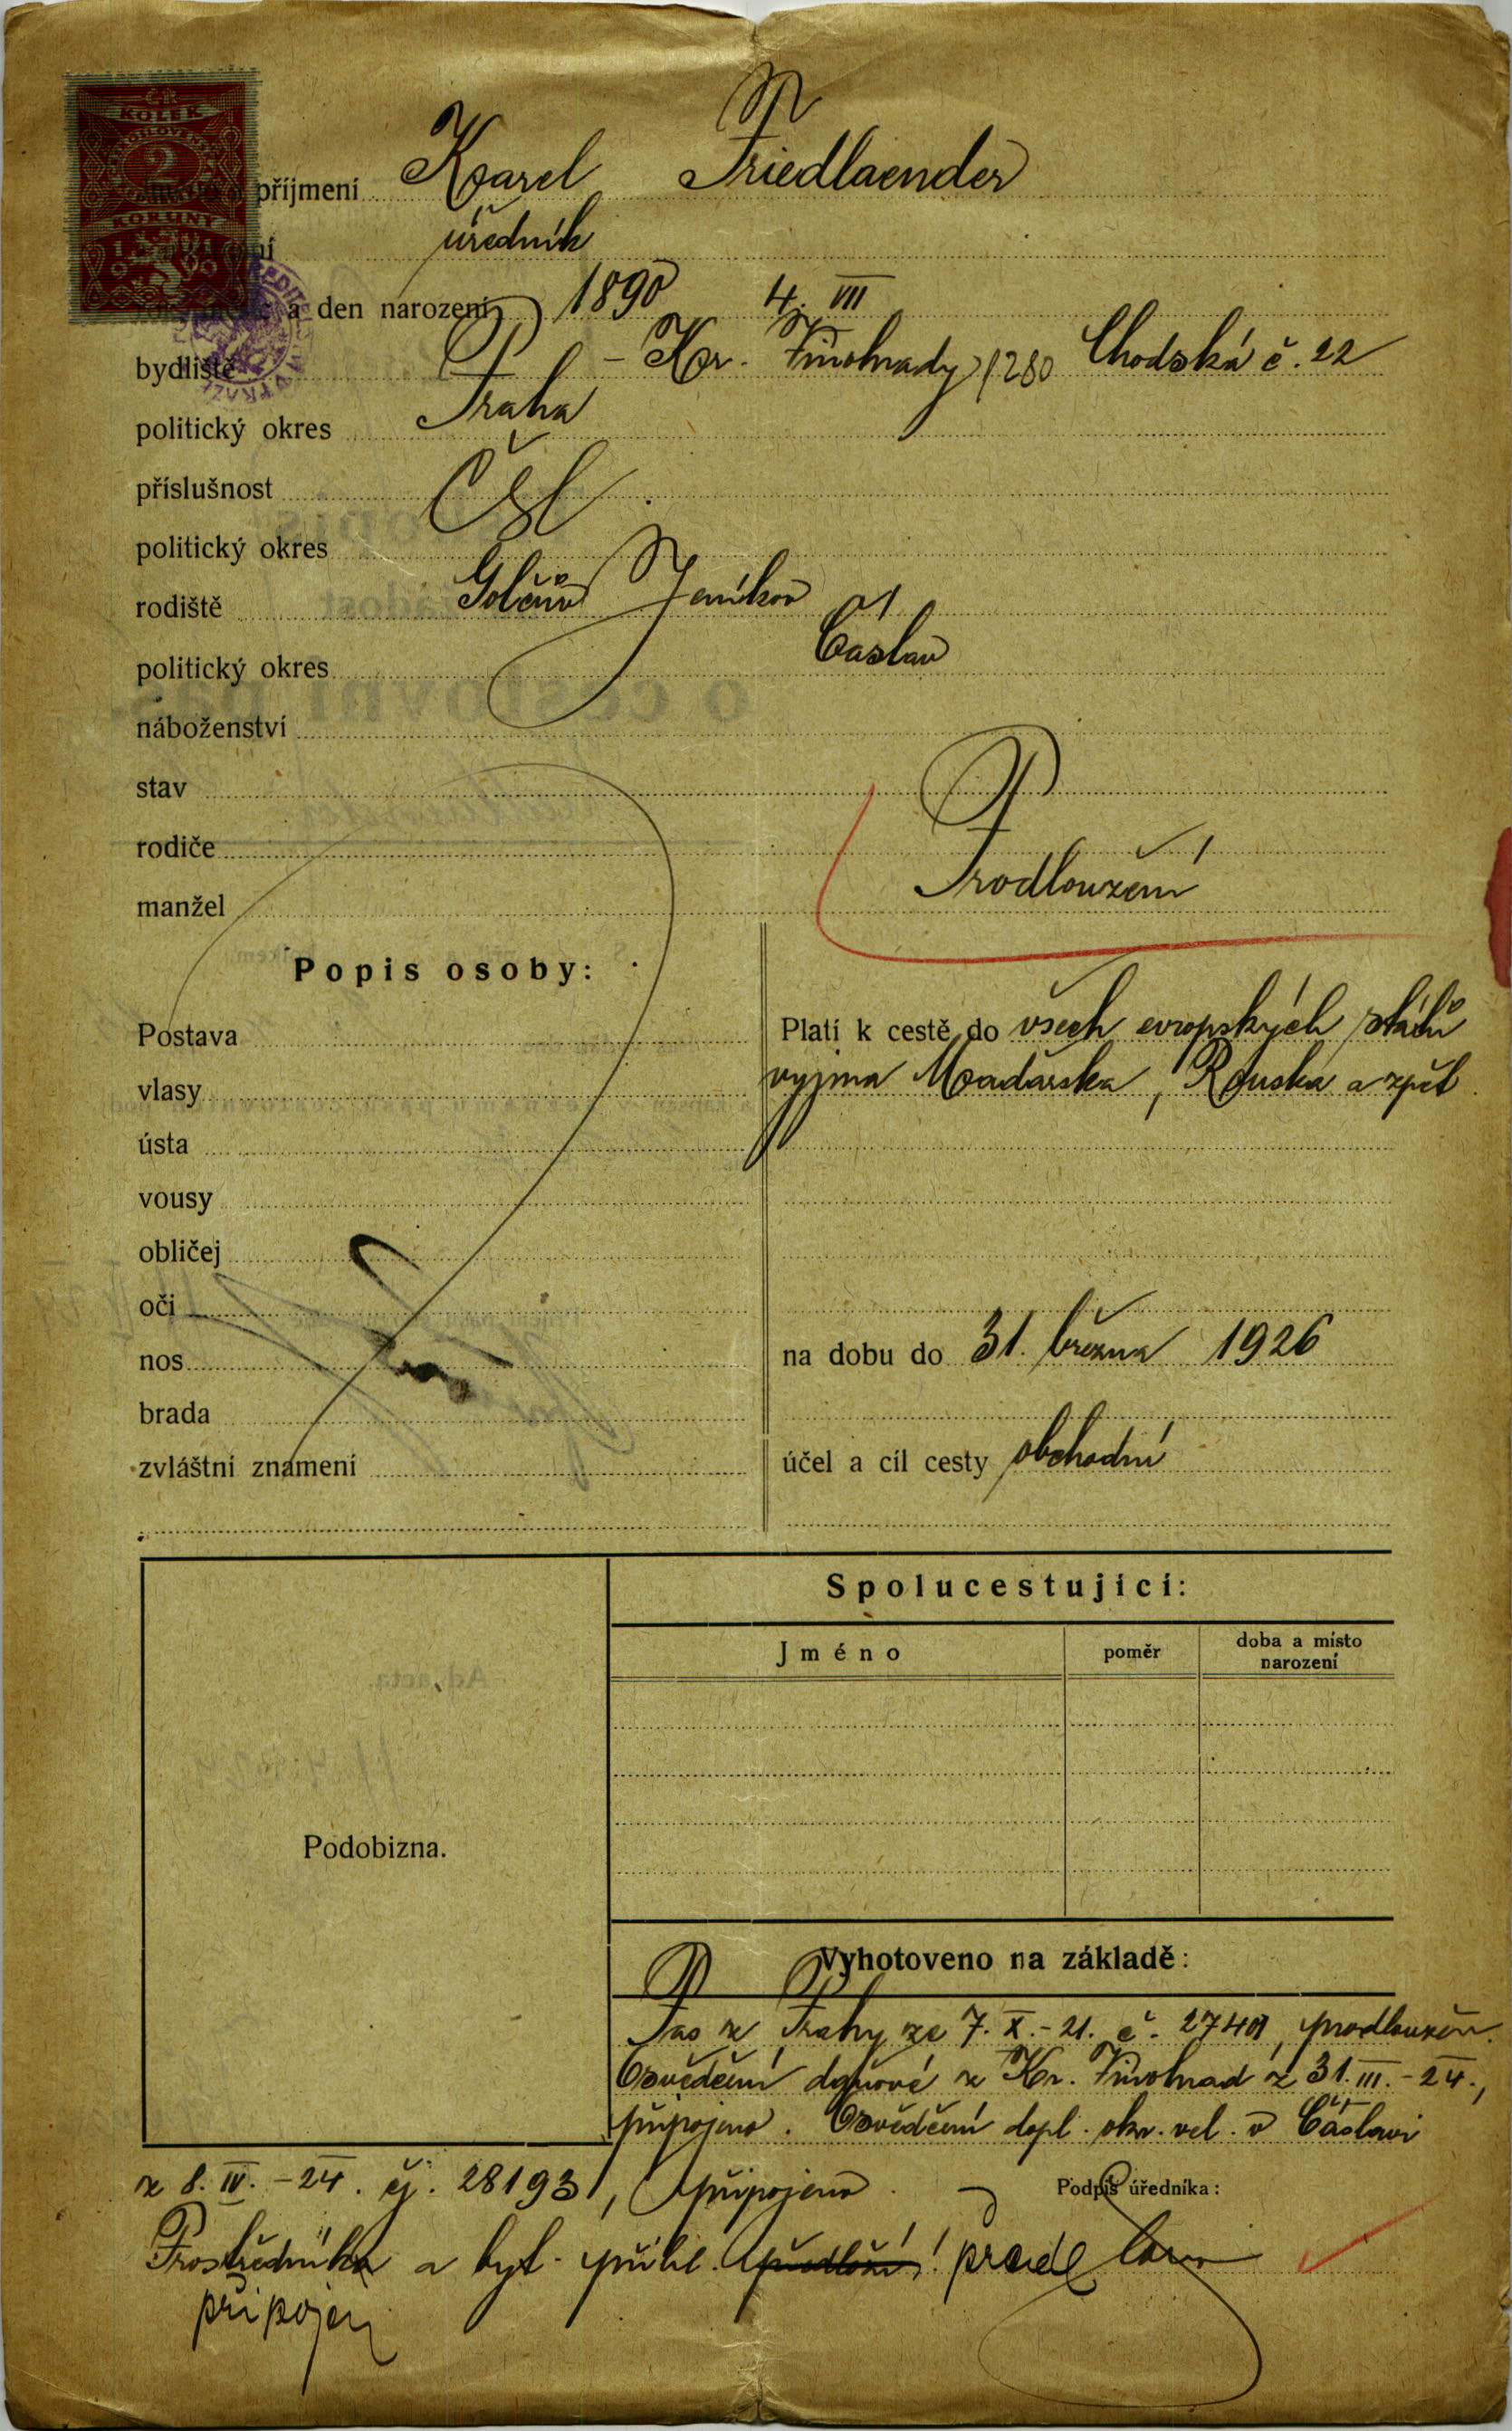 KOLEK
2
KORUNY
příjmení Karel Friedlaender
úředník
a den narození 1890 4. VII
bydliště Praha - Kr. Vinohrady 1280 Chodská č. 22
politický okres Praha
příslušnost Čsl.
politický okres
rodiště Golčův Jeníkov
politický okres Čáslav
náboženství
stav
rodiče
manžel
Prodloužení
Popis osoby:
Postava
vlasy
ústa
vousy
obličej
oči
nos
brada
zvláštní znamení
Platí k cestě do všech evropských států
vyjma Maďarska, Ruska a zpět
na dobu do 31. března 1926
účel a cíl cesty obchodní
Podobizna.
Spolucestující:
Jméno poměr doba a místo narození
Vyhotoveno na základě:
Pas z Prahy ze 7. X. - 21. č. prodloužen.
Osvědčení daňové z Kr. Vinohrad z 31. III. - 24.,
připojeno. Osvědčení dopl. okr. vel. v Čáslavi
z 8. IV. - 24. čj. 28193, připojeno.
Podpis úředníka:
a byt. přihl. předloží!
připojen